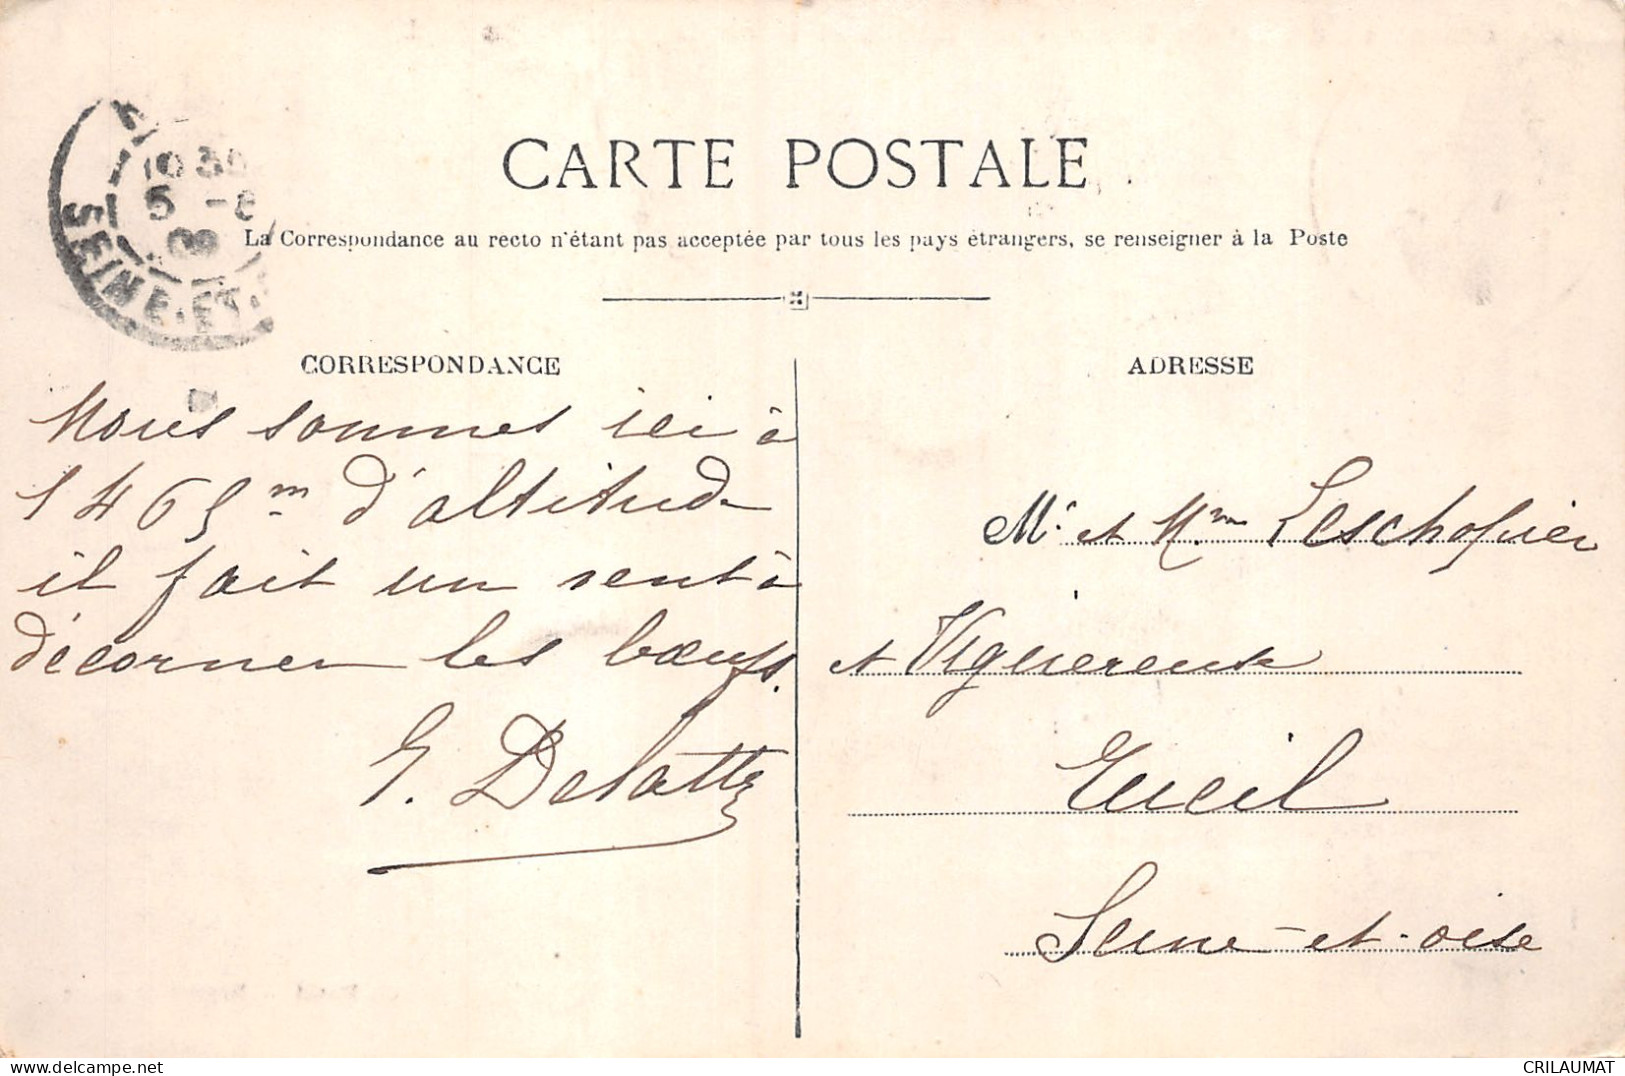 CARTE POSTALE
La Correspondance au recto n'étant pas acceptée par tous les pays étrangers, se renseigner à la Poste
10 35
5 -8
09
SEINE-ET-
CORRESPONDANCE
Nous sommes ici à
1465 m d'altitude
il fait un vent à
décorner les bœufs.
G. Delattre
ADRESSE
Mr et Mme Leschofier
et Viguereux
Ecueil
Seine-et-oise
CRILAUMAT